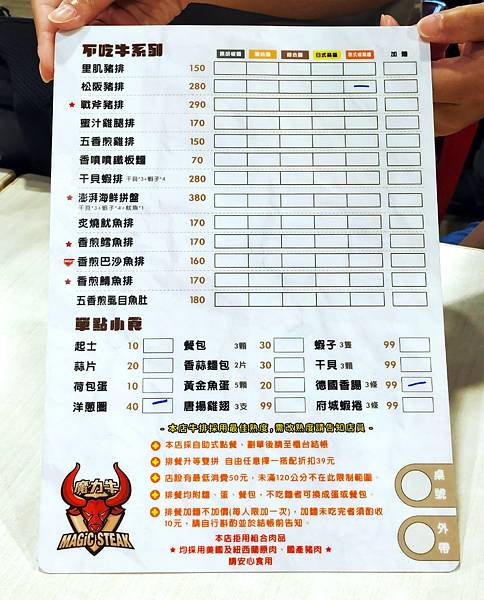 不吃牛系列 黑胡椒麵 蘑菇麵 綜合麵 日式烏麵 泰式椒麻麵 加麵
里肌豬排 150
松阪豬排 280
★戰斧豬排 290
蜜汁雞腿排 170
五香煎雞排 150
香噴噴鐵板麵 70
干貝蝦排 干貝*3+蝦子*4 280
★澎湃海鮮拼盤 380
干貝*3+蝦子*4+魷魚*1
炙燒魷魚排 170
★香煎鱈魚排 170
香煎巴沙魚排 160
★香煎鯖魚排 170
五香煎虱目魚肚 180
單點小食
起士 10 餐包 3顆 30 蝦子 3隻 99
蒜片 20 香蒜麵包 2片 30 干貝 3顆 99
荷包蛋 10 黃金魚蛋 5顆 20 德國香腸 3條 99
洋蔥圈 40 唐揚雞翅 3支 99 府城蝦捲 3條 99
-本店牛排採用最佳熟度,需改熟度請告知店員-
本店採自助式點餐、劃單後請至櫃台結帳
排餐升等雙拼 自由任意擇一搭配折扣39元
店設有最低消費50元，未滿120公分不在此限制範圍。
排餐均附麵、蛋、餐包，不吃麵者可換成蛋或餐包。
排餐加麵不加價(每人限加一次)，加麵未吃完者須酌收
10元，請自行斟酌並於結帳前告知。
本店拒用組合肉品
★均採用美國及紐西蘭原肉、國產豬肉★
請安心食用
魔力牛
MAGIC STEAK
桌號
外帶